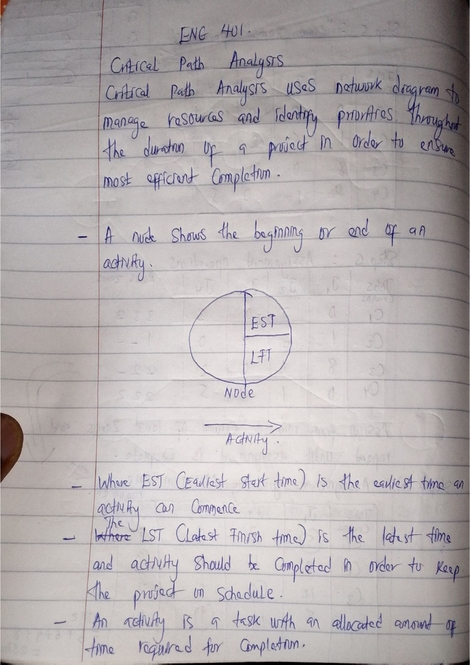 ENG 401.
Critical Path Analysis
Critical Path Analysis uses network diagram to
manage resources and identify priorities throughout
the duration of a project in order to ensure
most efficient Completion.
- A node shows the beginning or end of an
activity.
EST
LFT
NODE
Activity.
- Where EST (Earliest start time) is the earliest time an
activity can Commence
- The LST (Latest Finish time) is the latest time
and activity should be completed in order to keep
the project on schedule.
- An activity is a task with an allocated amount of
time required for Completion.